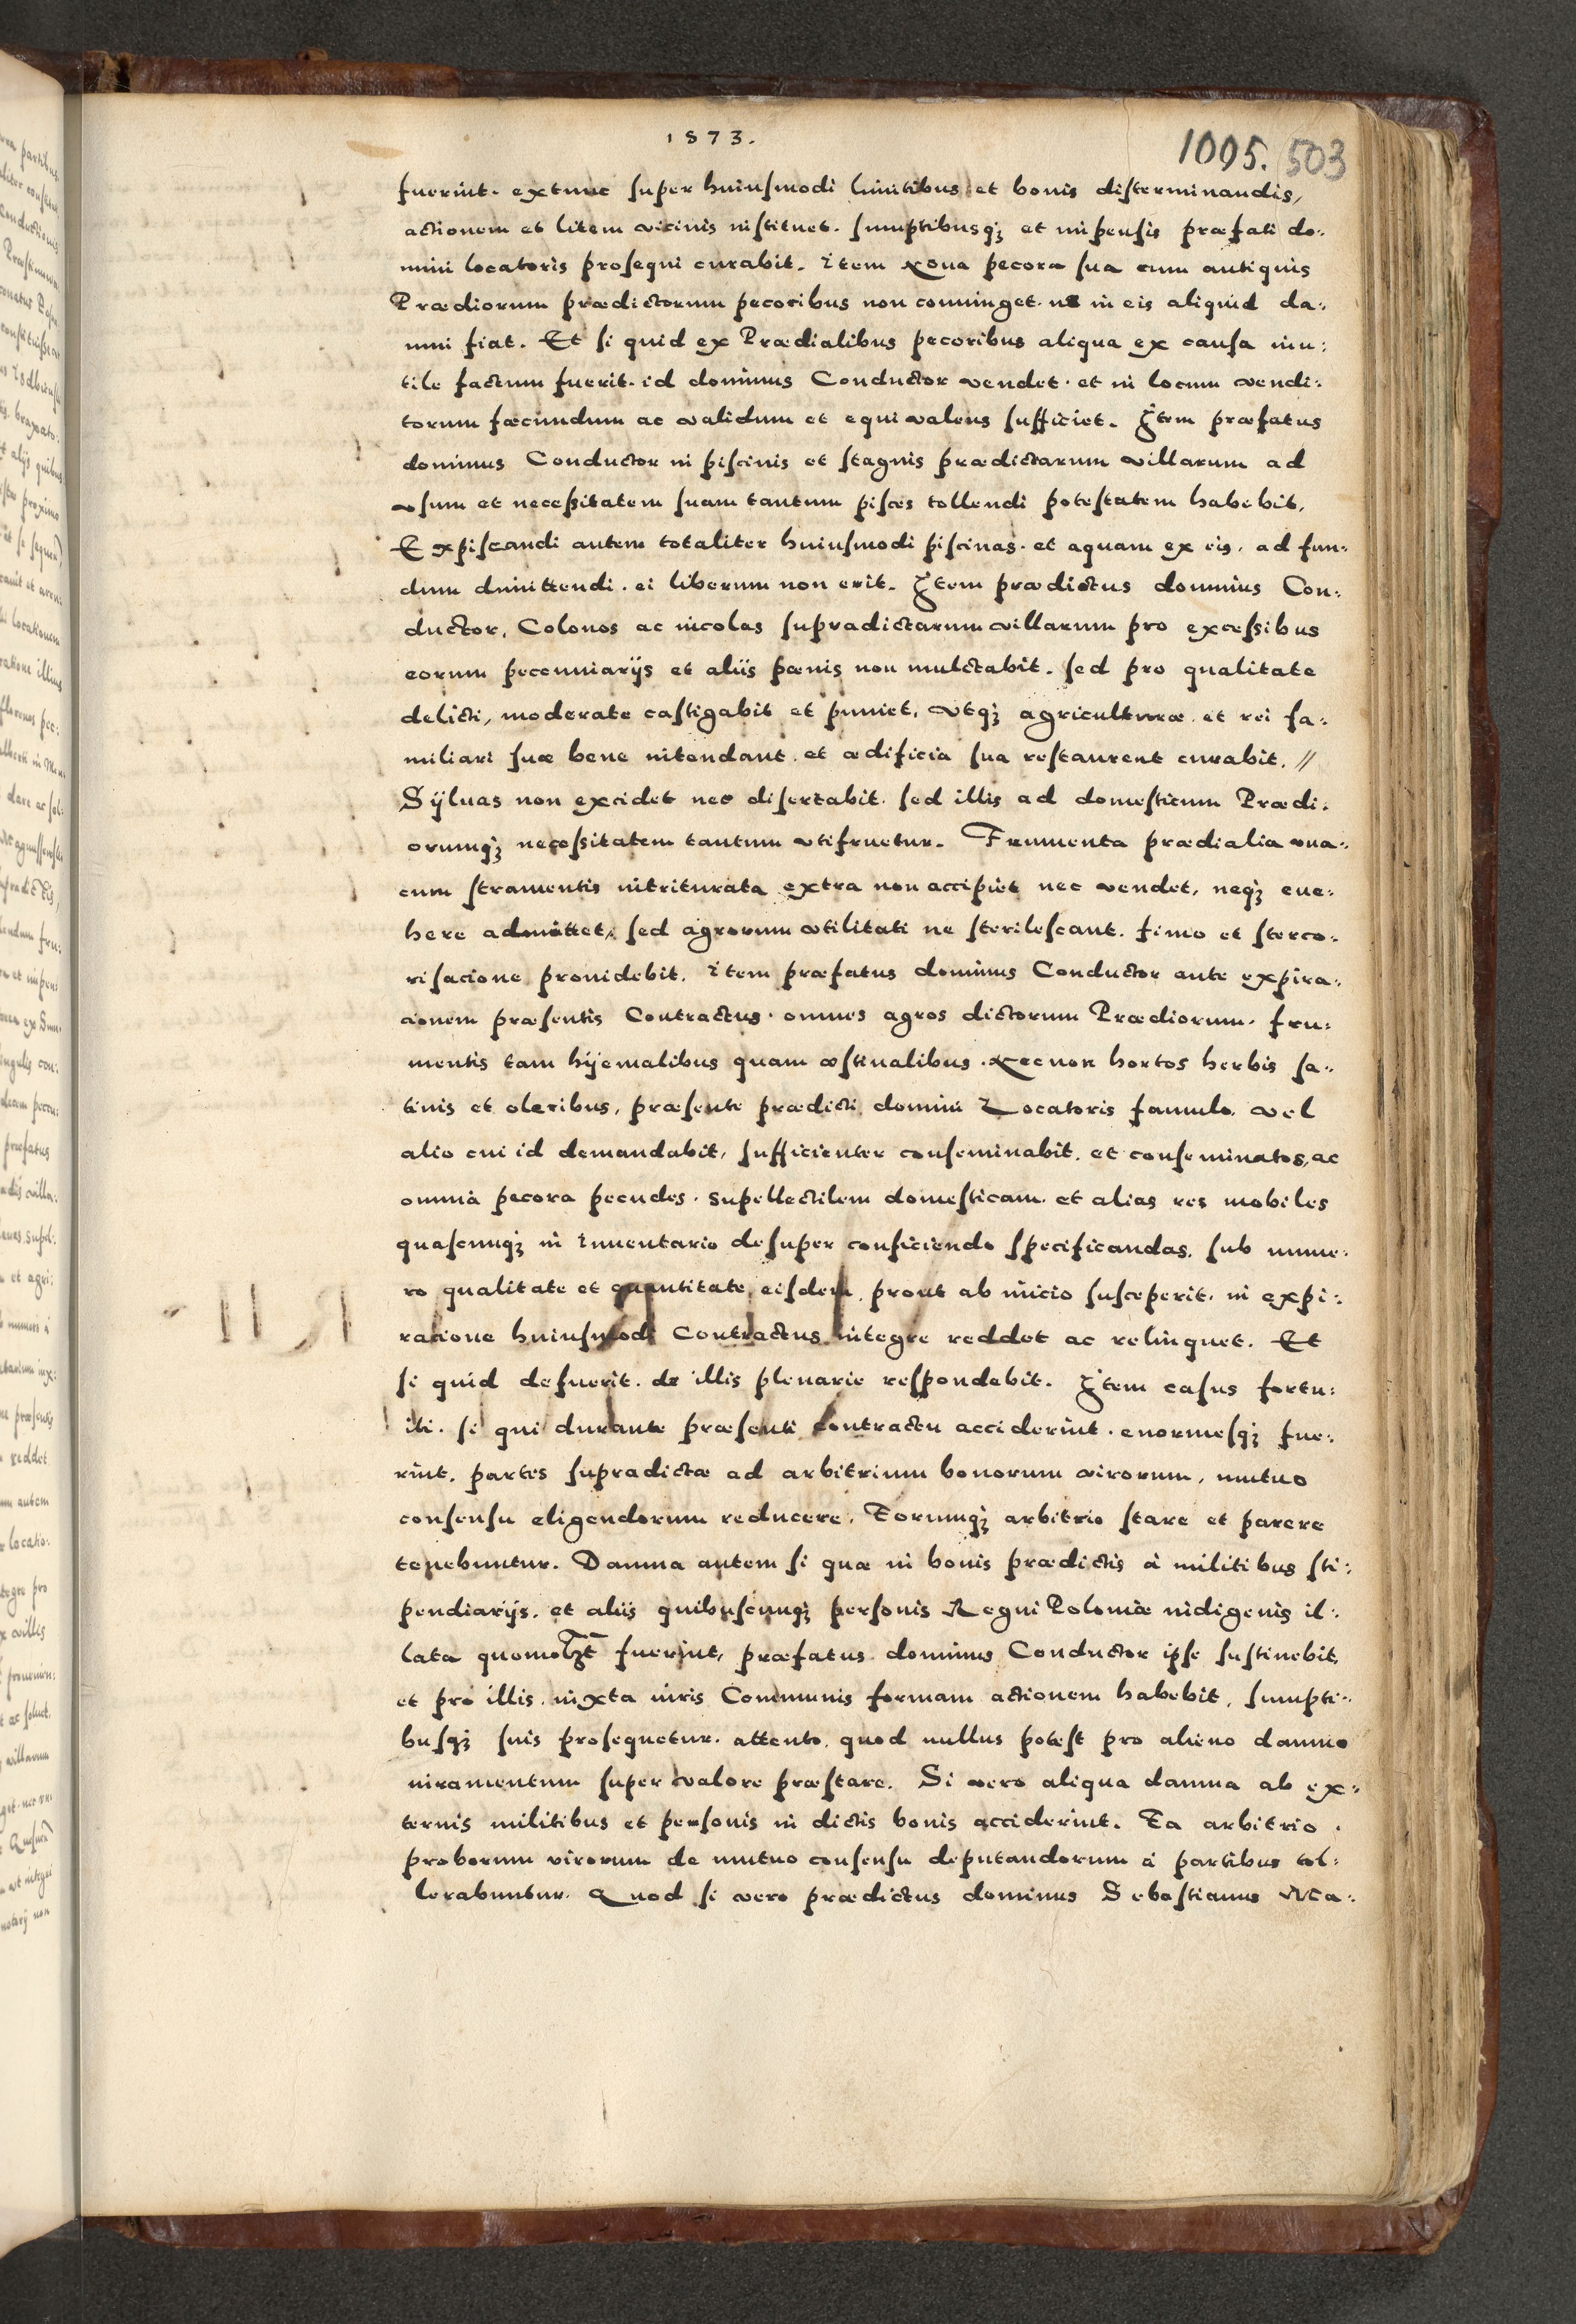 1573.
1095. 503
fuerint. extunc super huiusmodi limitibus et bonis disterminandis,
actionem et litem vicinis instituet. sumptibusq; et impensis præfati do:
mini locatoris prosequi curabit. Item Noua pecora sua cum antiquis
Prædiorum prædictorum pecoribus non comminget. ne in eis aliquid da:
mni fiat. Et si quid ex Prædialibus pecoribus aliqua ex causa inu:
tile factum fuerit. id dominus Conductor vendet. et in locum vendi:
torum fæcundum ac validum et equivalens sufficiet. Item præfatus
dominus Conductor in piscinis et stagnis prædictarum villarum ad
vsum et necessitatem suam tantum pisces tollendi potestatem habebit.
Expiscandi autem totaliter huiusmodi piscinas. et aquam ex eis. ad fun:
dum dimittendi. ei liberum non erit. Item prædictus dominus Con:
ductor, Colonos ac incolas supradictarum villarum pro excessibus
eorum pecenniarijs et aliis pænis non mulctabit. sed pro qualitate
delicti, moderate castigabit et puniet, vtq; agriculturæ et rei fa:
miliari suæ bene intendant. et ædificia sua restaurent curabit. //
Syluas non excidet nec disertabit. sed illis ad domesticum Prædi:
orumq; necessitatem tantum vtifruetur. Frumenta prædialia vna:
cum stramentis intriturata extra non accipiet nec vendet, neq; eue:
here admittet, sed agrorum vtilitati ne sterilescant. fimo et sterco:
risacione prouidebit. Item præfatus dominus Conductor ante expira:
cionem præsentis Contractus. omnes agros dictorum Prædiorum. fru:
mentis tam hyemalibus quam æstiualibus. Necnon hortos herbis sa:
tiuis et oleribus, præsente prædicti domini Locatoris famulo. vel
alio cui id demandabit, sufficienter conseminabit. et conseminatos, ac
omnia pecora pecudes. supellectilem domesticam. et alias res mobiles
quascunq; in Inuentario desuper conficiendo specificandas. sub nume:
ro qualitate et quantitate eisdem, prout ab inicio susceperit. in expi:
racione huiusmodi Contractus integre reddet ac relinquet. Et
si quid defuerit. de illis plenarie respondebit. Item casus fortu:
iti. si qui durante præsenti contractu acciderint. enormesq; fue:
rint. partes supradictæ ad arbitrium bonorum virorum, mutuo
consensu eligendorum reducere, Eorumq; arbitrio stare et parere
tenebuntur. Damna autem si quæ in bonis prædictis à militibus sti:
pendiarijs. et aliis quibuscunq; personis Regni Poloniæ indigenis il:
lata fuerint, præfatus dominus Conductor ipse sustinebit.
et pro illis iuxta iuris Communis formam actionem habebit, sumpti:
busq; suis prosequetur. attento. quod nullus potest pro alieno damno
iuramentum super valore præstare. Si vero aliqua damna ab ex:
ternis militibus et personis in dictis bonis acciderint. Ea arbitrio
proborum virorum de mutuo consensu deputandorum à partibus tol:
lerabuntur. Quod si vero prædictus dominus Sebastianus Ma: